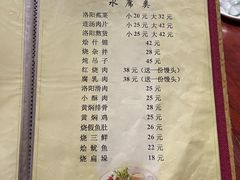 水席类
洛阳燕菜 小20元 大32元
连汤肉片 小25元 大42元
洛阳熬货 小25元 大42元
烩什锦 42元
烧杂拌 28元
炖吊子 45元
红烧肉 38元（送一份馒头）
腐乳肉 38元（送一份馒头）
洛阳滑肉 25元
小酥肉 25元
黄焖排骨 28元
黄焖鸡 25元
烧假鱼肚 26元
烧三鲜 26元
烩鱿鱼 22元
烧扁垛 18元